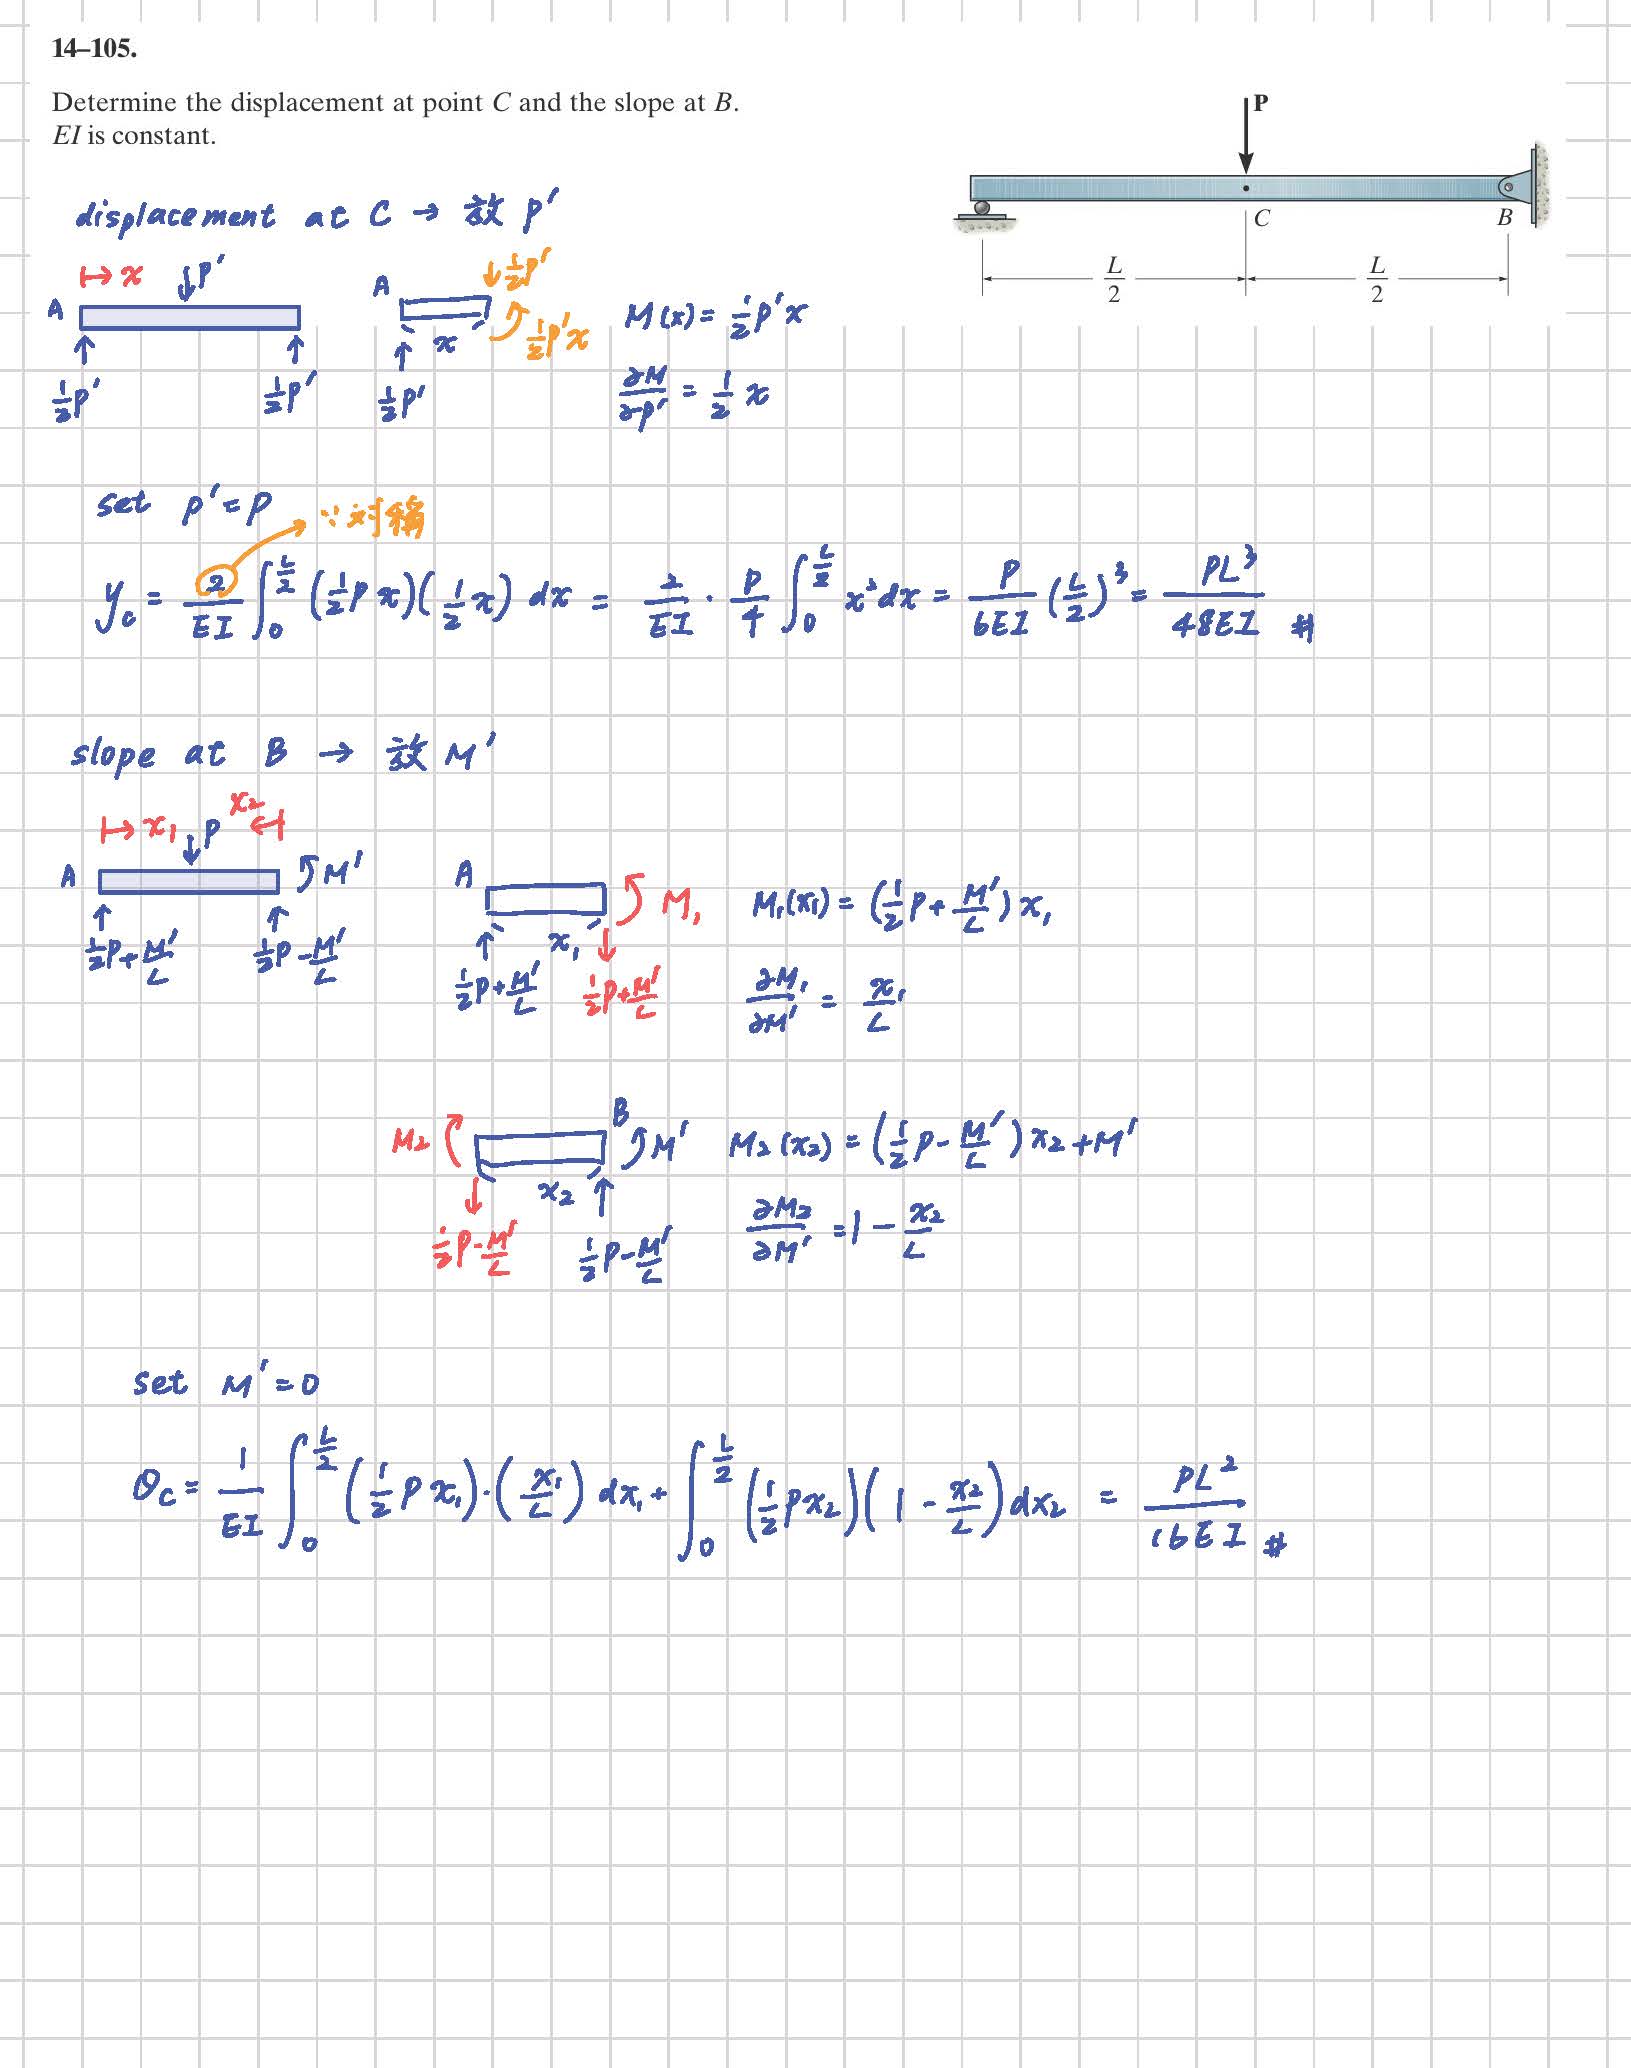 14–105.
Determine the displacement at point C and the slope at B.
EI is constant.
P
C
B
L/2
L/2
displacement at C → 放 P'
↦ x
↓P'
A
½P'
½P'
A
↓½P'
½P'x
x
½P'
M(x) = ½P'x
∂M/∂P' = ½ x
set P' = P
∵對稱
y_c = 2/EI ∫₀^(L/2) (½Px)(½x) dx = 2/EI · P/4 ∫₀^(L/2) x²dx = P/6EI (L/2)³ = PL³/48EI #
slope at B → 放 M'
↦ x₁
↓P
x₂
A
M'
½P+M'/L
½P-M'/L
A
M₁
x₁
½P+M'/L
½P+M'/L
M₁(x₁) = (½P+M'/L) x₁
∂M₁/∂M' = x₁/L
M₂
B
M'
x₂
½P-M'/L
½P-M'/L
M₂(x₂) = (½P-M'/L) x₂+M'
∂M₂/∂M' = 1 - x₂/L
set M' = 0
θ_C = 1/EI ∫₀^(L/2) (½Px₁)·(x₁/L) dx₁ + ∫₀^(L/2) (½Px₂)(1 - x₂/L) dx₂ = PL²/16EI #